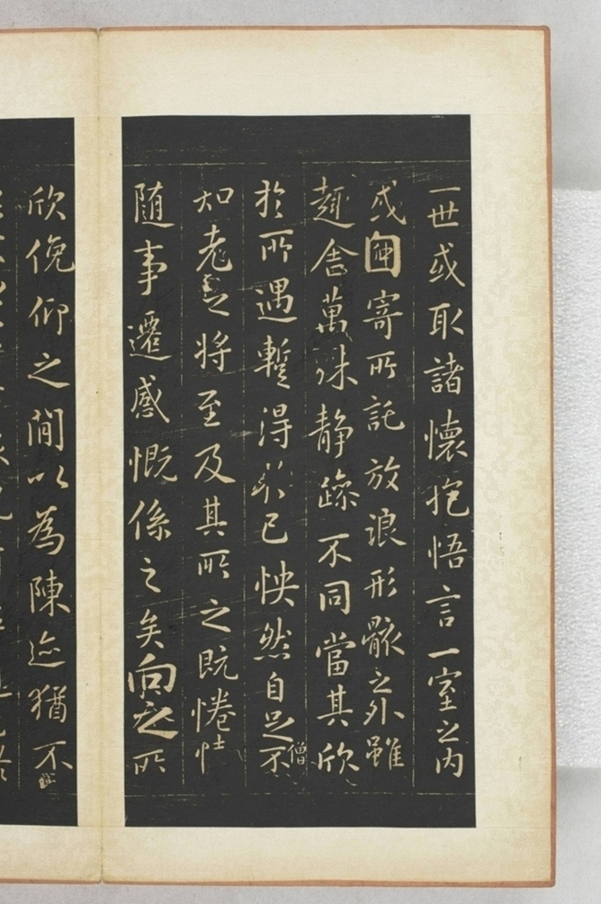 一世或取諸懷抱悟言一室之內
或因寄所託放浪形骸之外雖
趣舎萬殊静躁不同當其欣
僧
於所遇蹔得於己怏然自足不
知老之将至及其所之既惓情
随事遷感慨係之矣向之所
欣俛仰之閒以為陳迹猶不